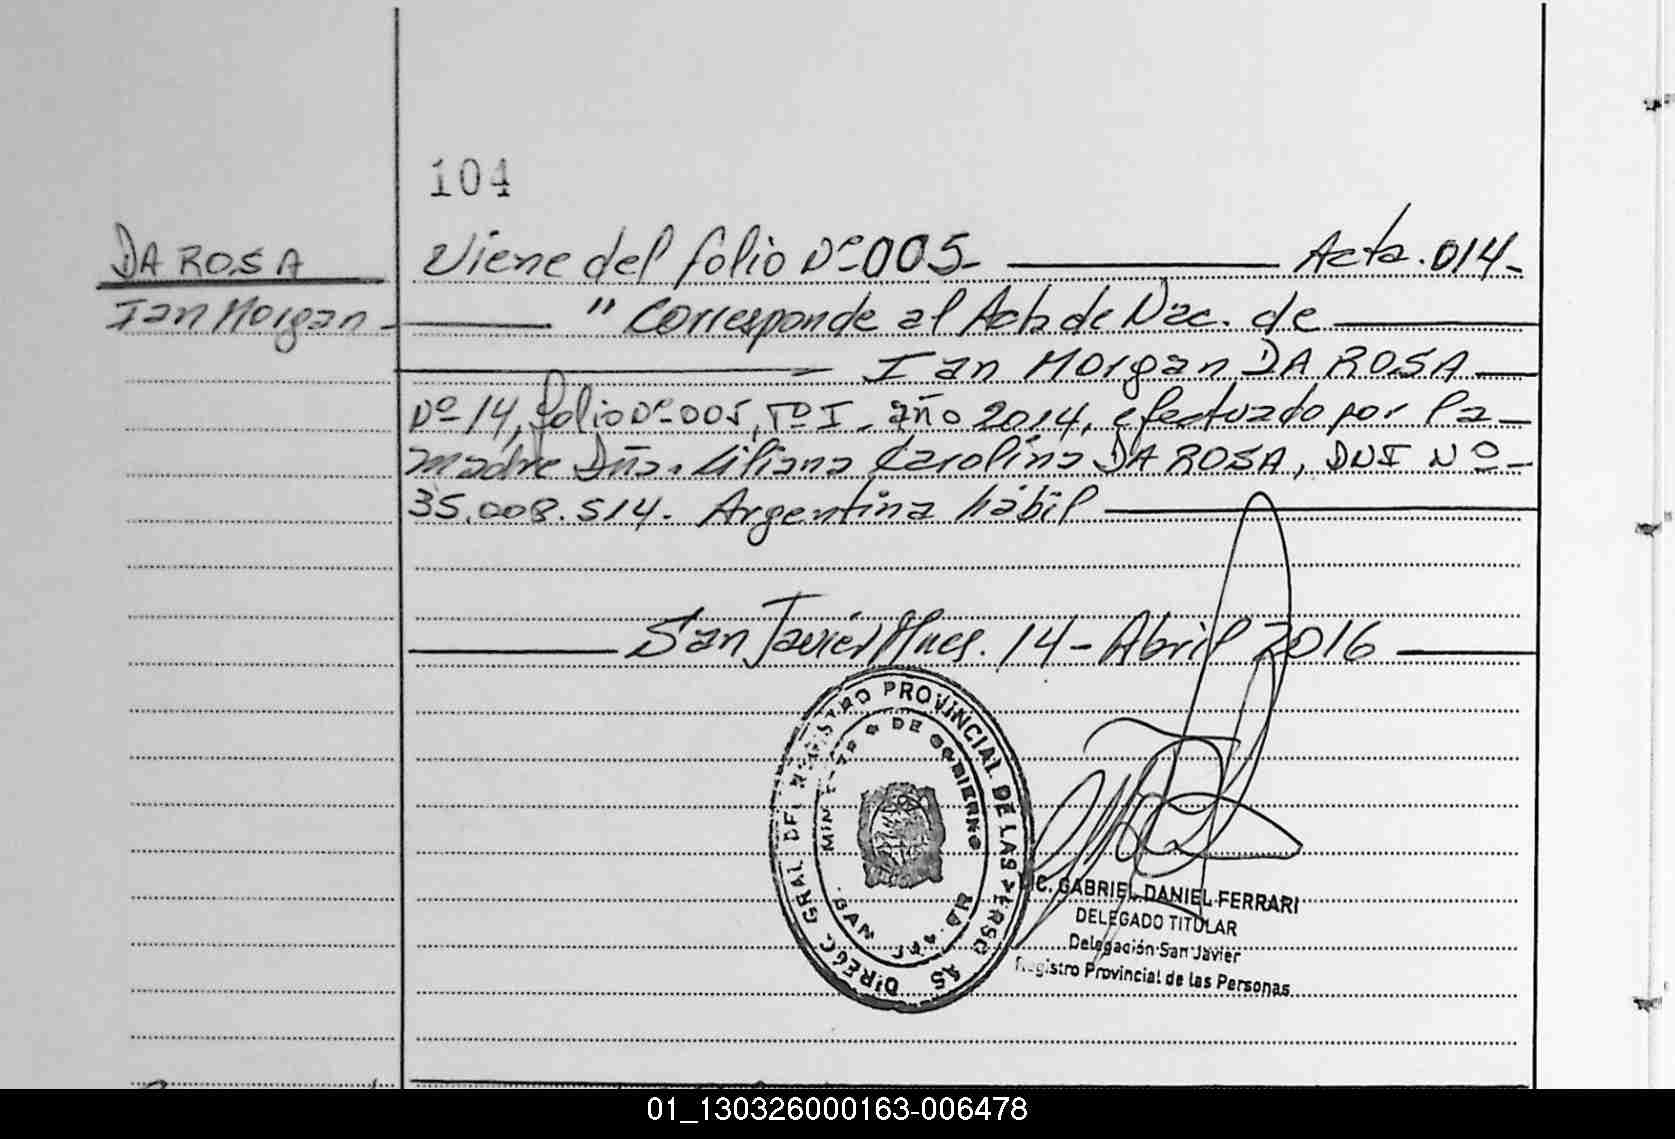 104
DA ROSA
Ian Morgan -
Viene del folio Nº 005- Acta. 014-
" Corresponde al Acta de Nac. de
Ian Morgan DA ROSA
Nº 14, folio Nº 005, Tº I. año 2014, efectuado por la
madre Dña. Liliana Carolina DA ROSA, DNI Nº
35.008.514. Argentina hábil
San Javier Mnes. 14 - Abril 2016
DIRECC. GRAL DEL REGISTRO PROVINCIAL DE LAS PERSONAS
MINISTERIO DE GOBIERNO
GABRIEL DANIEL FERRARI
DELEGADO TITULAR
Delegación San Javier
Registro Provincial de las Personas
01_130326000163-006478